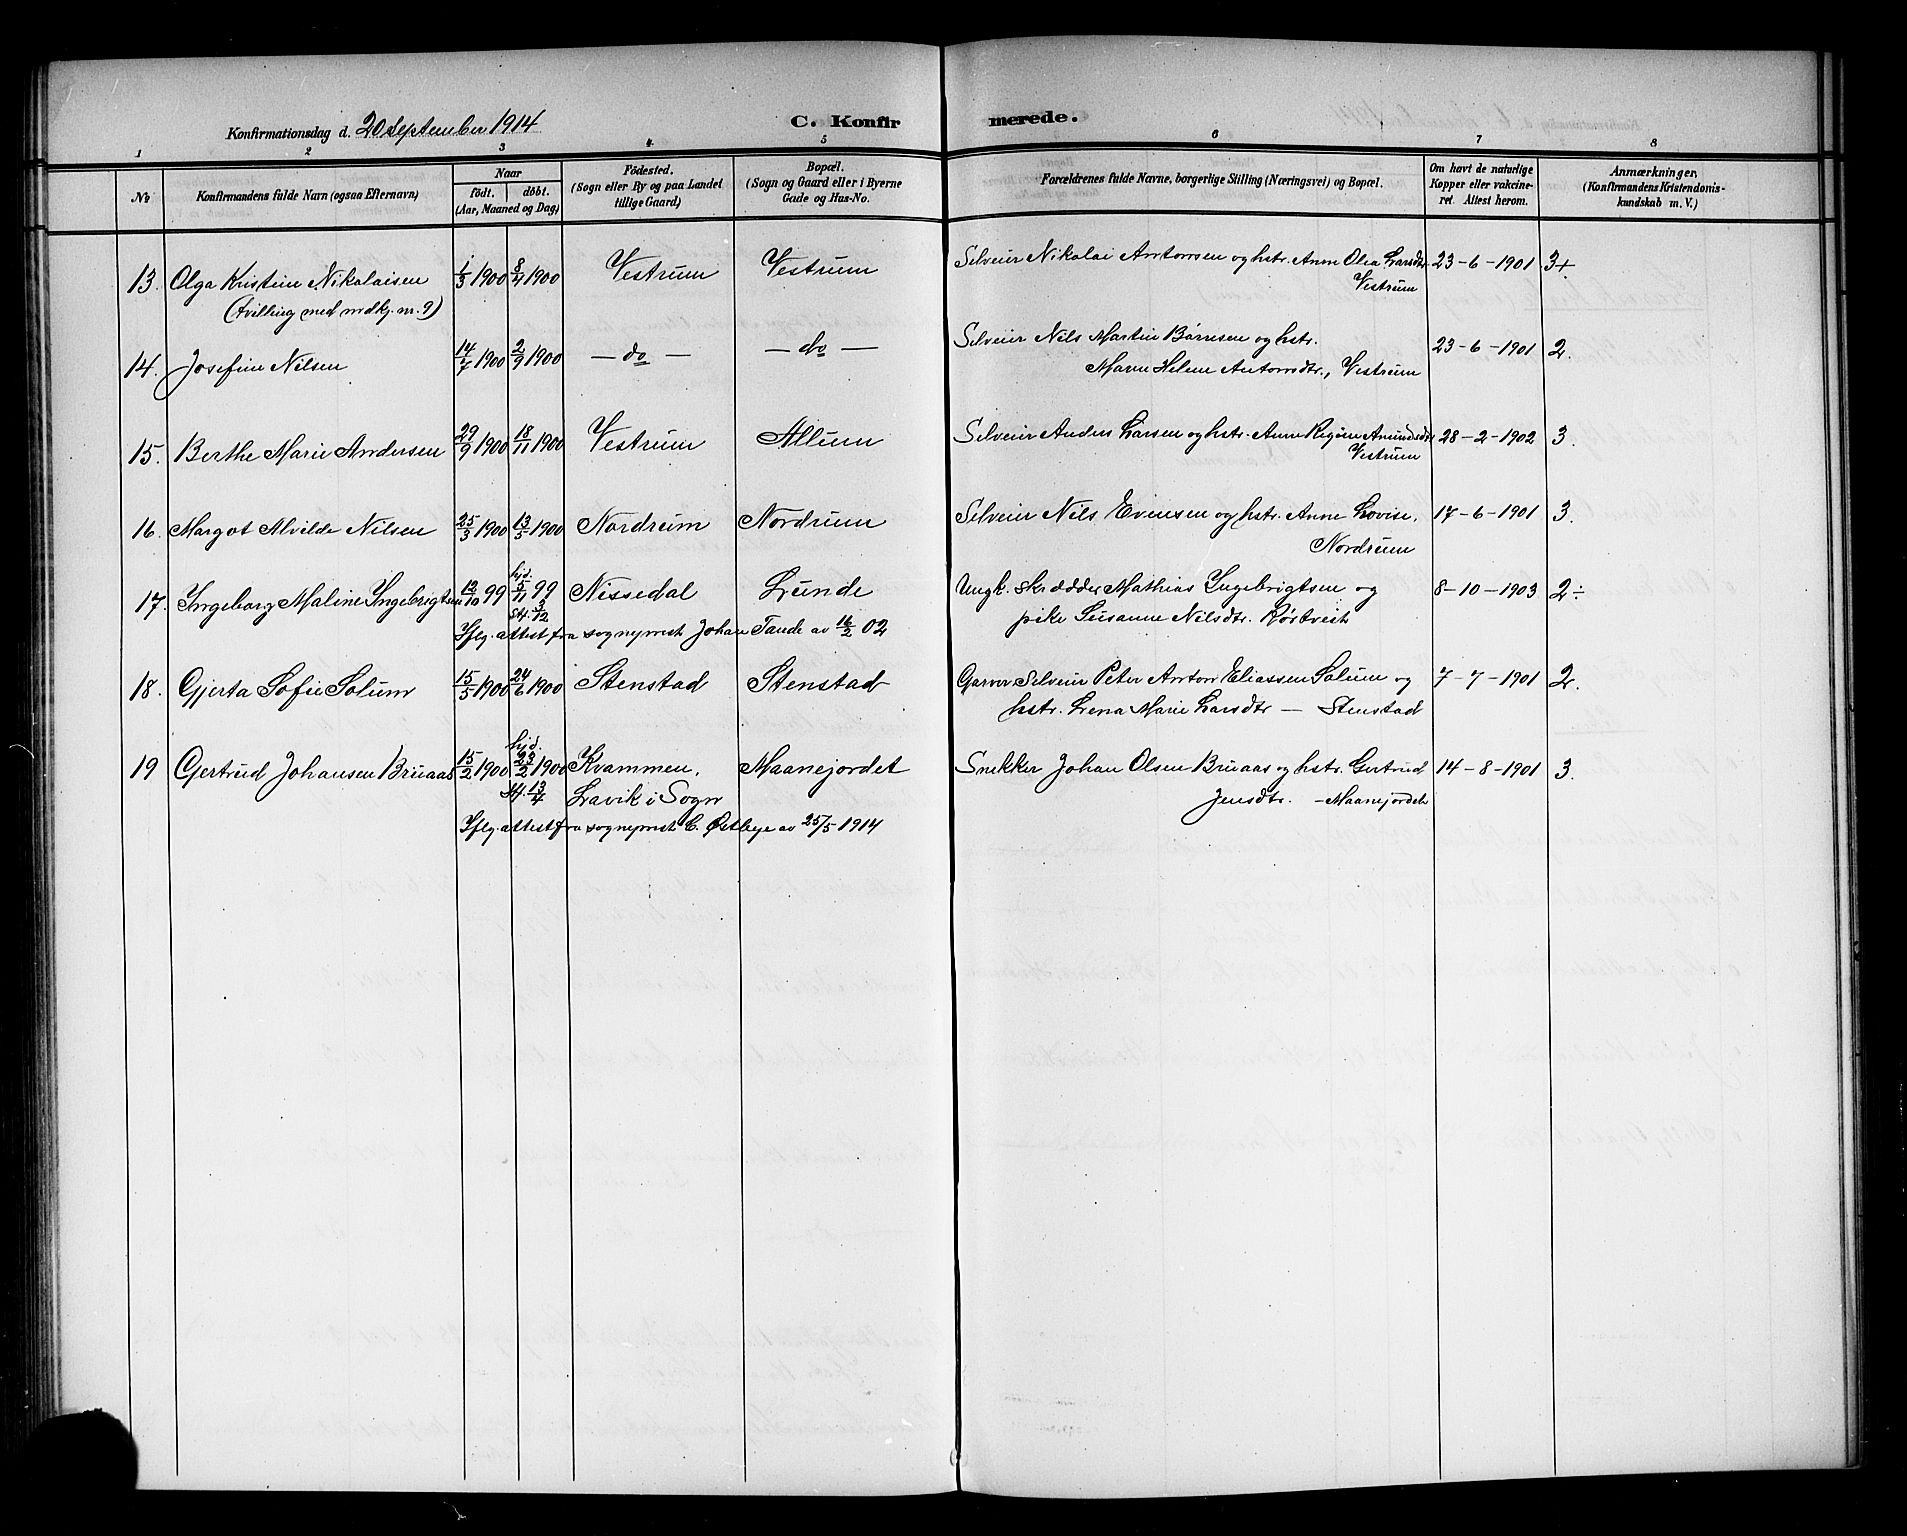 Konfirmationsdag d. 20 september 1914 C. Konfirmerede.
1 2 3 4 5 6 7 8
No Konfirmandens fulde Navn (ogsaa Efternavn) Naar født. døbt. (Aar, Maaned og Dag) Födested. (Sogn eller By og paa Landet tillige Gaard) Bopæl. (Sogn og Gaard eller i Byerne Gade og Hus-No. Forældrenes fulde Navne, borgerlige Stilling (Næringsvei) og Bopæl. Om havt de naturlige Kopper eller vakcineret. Attest herom. Anmærkninger, (Konfirmandens Kristendomskundskab m. V.)
13. Olga Kristine Nikolaisen 1/3 1900 8/4 1900 Vestrum Vestrum Selveier Nikolai Antonsen og hstr. Anne Olea Larsdtr. 23-6-1901 3+
(tvilling med mdkj. nr. 9) Vestrum
14. Josefine Nilsen 14/7 1900 2/9 1900 — do — — do — Selveier Nils Martin Børresen og hstr. 23-6-1901 2.
Maren Helene Antonsdtr., Vestrum
15. Berthe Marie Andersen 29/9 1900 18/11 1900 Vestrum Allum Selveier Anders Larsen og hstr. Anne Amundsdtr 28-2-1902 3.
Vestrum
16. Margot Alvilde Nilsen 25/3 1900 13/5 1900 Nordrum Nordrum Selveier Nils Evensen og hstr. Anne Lovise, 17-6-1901 3.
Nordrum
17. Ingeborg Maline Ingebrigtsen 12/10 99 hjd. 5/11 99 Nissedal Lunde Ungk. Skrædder Mathias Ingebrigtsen og 8-10-1903 2÷
st. 3/12 pike Susanne Nilsdtr. Kørkveit
Iflg. attest fra sogneprest Johan Tande av 16/2 02
18. Gjerta Sofie Solum 15/5 1900 24/6 1900 Stenstad Stenstad Garver Selveier Peter Anton Eliassen Solum og 7-7-1901 2.
hstr. Lena Marie Larsdtr — Stenstad
19 Gertrud Johansen Bruaas 15/2 1900 hjd. 23/2 1900 Kvammen, Maanejordet Snekker Johan Olsen Bruaas og hstr. Gertrud 14-8-1901 3.
st. 13/4 Lavik i Sogn Jensdtr. - Maanejordet
Iflg. attest fra sogneprest C. Østbye av 25/5 1914